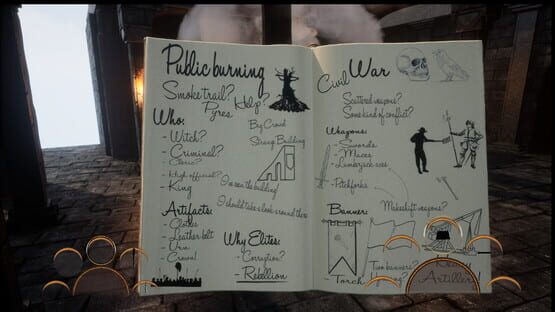 Public burning
Smoke trail?
Pyres Help?
Who:
- Witch?
- Criminal?
- Cleric?
- High official?
King
Artifacts:
- Clothes
- Leather belt
- Urn
- Crown!
Big Crowd
Strong Building
I'm seeing the building!
I should take a look around there
Why Elites:
- Corruption?
- Rebellion
Civil War
Scattered weapons?
Some kind of conflict?
Weapons:
- Swords
- Maces
- Lumberjack axes
- Pitchforks
Makeshift weapons?
Banner:
Two banners?
- Torch
Artillery!